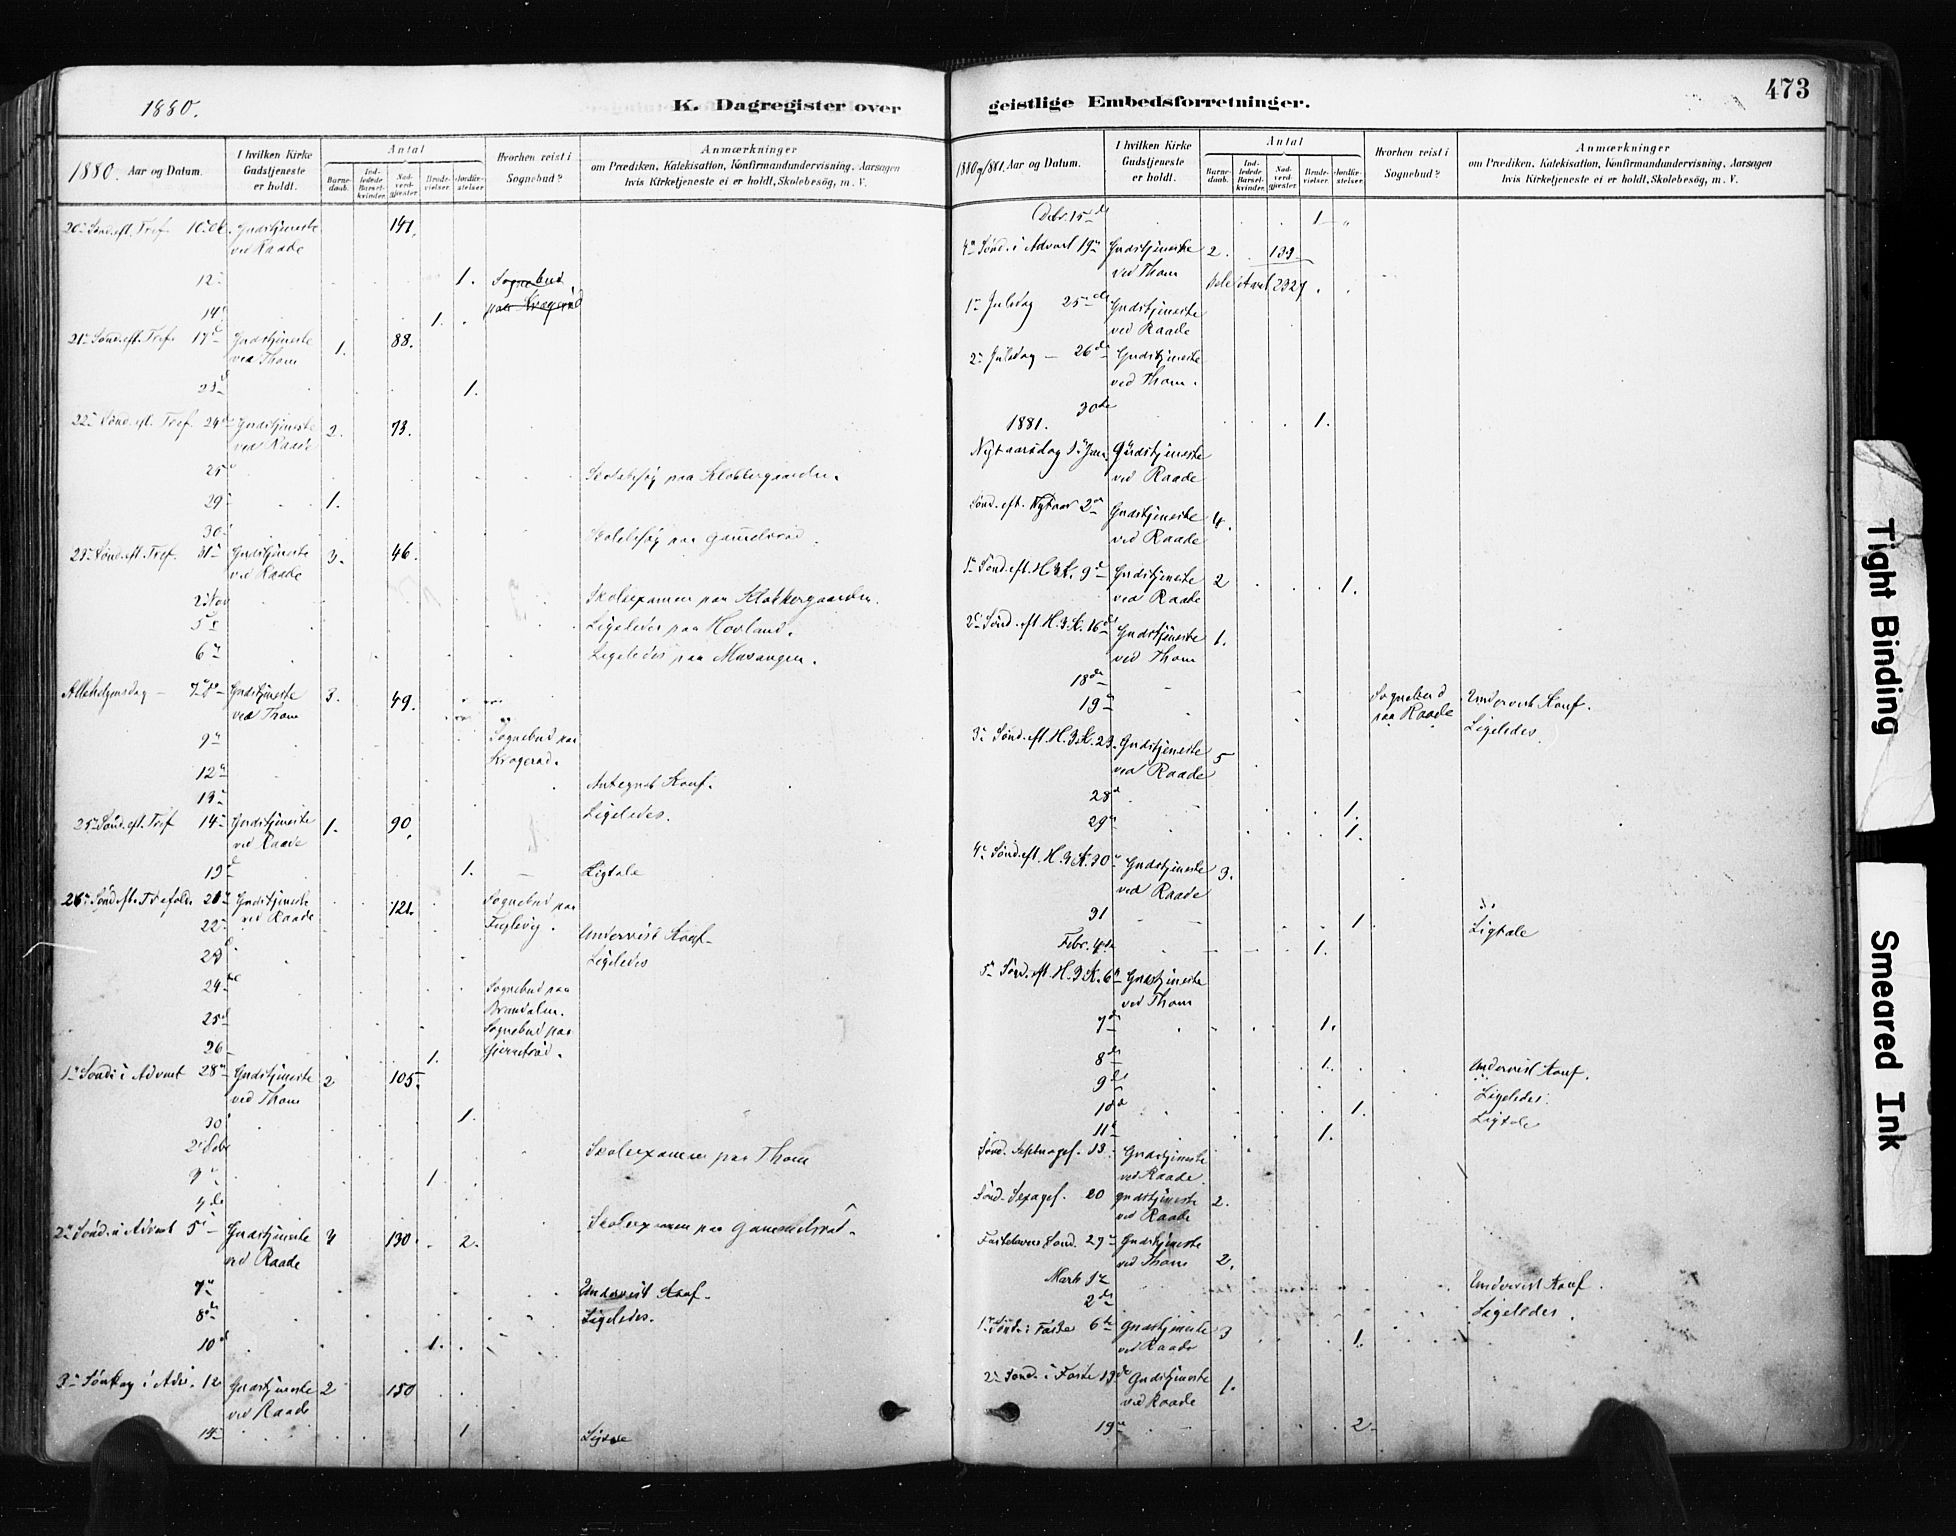 1880.
K. Dagregister over
1880. Aar og Datum.
I hvilken Kirke Gudstjeneste er holdt.
Antal
Barne-daab.
Ind-ledede Barsel-kvinder.
Nad-verd-gjæster.
Brude-vielser.
Jordfæ-stelser.
Hvorhen reist i Sognebud?
Anmærkninger
om Prædiken, Katekisation, Konfirmandundervisning, Aarsagen
hvis Kirketjeneste ei er holdt, Skolebesøg, m. V.
20de Sønd. eft. Tref. 10de Gudstjeneste ved Raade 141.
12 1. Sognebud paa Kragerød
14 1.
21de Sønd. eft. Tref. 17de Gudstjeneste ved Thom 1. 88.
23 1.
22de Sønd. eft. Tref. 24de Gudstjeneste ved Raade 2. 73.
25 Skolebesøg paa Klokkergaarden.
29 1.
30 Skolebesøg paa Gammelsrød
23de Sønd. eft. Tref. 31te Gudstjeneste ved Raade 3. 46.
2 Nov Skoleexamen paa Klokkergaarden.
5te Ligeledes paa Hovland.
6te Ligeledes paa Mosangen.
Allehelgensdag 7de Gudstjeneste ved Thom 3. 49.
9de Sognebud paa Kragerød.
12te Antegnet Konf.
13 Ligeledes.
25de Sønd. eft. Tref 14 Gudstjeneste ved Raade 1. 90.
19 1. Ligtale
26de Sønd. eft. Trefold. 21 Gudstjeneste ved Raade 121. Sognebud paa Fuglevig.
22 Undervist Konf.
23 Ligeledes
24de Sognebud paa
25de Sognebud paa
26 1.
1ste Sønd. i Advent 28de Gudstjeneste ved Thom 2 105.
30 1.
2 Debr Skoleexamen paa Thom
3 1.
4de Skoleexamen paa Gammelsrød.
2den Sønd. i Advent 5 Gudstjeneste ved Raade 4 130 2.
7de Undervist Konf.
8de Ligeledes.
10de 1.
3de Søndag i Adv. 12 Gudstjeneste ved Raade 2 150
14 1 Ligtale
geistlige Embedsforretninger.
473
1880 og /1881. Aar og Datum.
I hvilken Kirke Gudstjeneste er holdt.
Antal
Barne-daab.
Ind-ledede Barsel-kvinder.
Nad-verd-gjæster.
Brude-vielser.
Jordfæ-stelser.
Hvorhen reist i Sognebud?
Anmærkninger
om Prædiken, Katekisation, Konfirmandundervisning, Aarsagen
hvis Kirketjeneste ei er holdt, Skolebesøg, m. V.
Debr. 15de 1
4de Sønd. i Advent 19de Gudstjeneste ved Thom 2. 139
hele Aaret 2327
1ste Juledag 25de Gudstjeneste ved Raade
2den Juledag 26de Gudstjeneste ved Thom.
30de 1.
1881.
Nytaarsdag 1ste Jan. Gudstjeneste ved Raade
Sønd. eft. Nytaar 2den Gudstjeneste ved Raade 4.
1ste Sønd. eft. H. 3 K. 9de Gudstjeneste ved Raade 2 1.
2den Sønd. eft. H. 3 K. 16de Gudstjeneste ved Thom 1.
18de Sognebud paa Raade Undervist Konf.
19de Ligeledes.
3de Sønd. eft. H. 3 K. 23. Gudstjeneste ved Raade 5
28de 1.
29de 1.
4de Sønd. eft. H. 3 K. 30 Gudstjeneste ved Raade 3.
31 1 Ligtale
Febr. 4de 1.
5te Sønd. eft. H. 3 K. 6te Gudstjeneste ved Thom
7de 1.
8de 1. Undervist Konf.
9de Ligeledes.
10de 1. Ligtale
11te 1.
Sønd. Septuages. 13. Gudstjeneste ved Raade.
Sønd. Sexages. 20 Gudstjeneste ved Raade 2.
Fastelavns Sønd. 27de Gudstjeneste ved Thom 2.
Marts 1ste Undervist Konf.
2de Ligeledes.
1ste Sønd. i Faste 6te Gudstjeneste ved Raade 3 1.
2den Sønd. i Faste 13de Gudstjeneste ved Raade 1.
19de 2.
Tight Binding
Smeared Ink